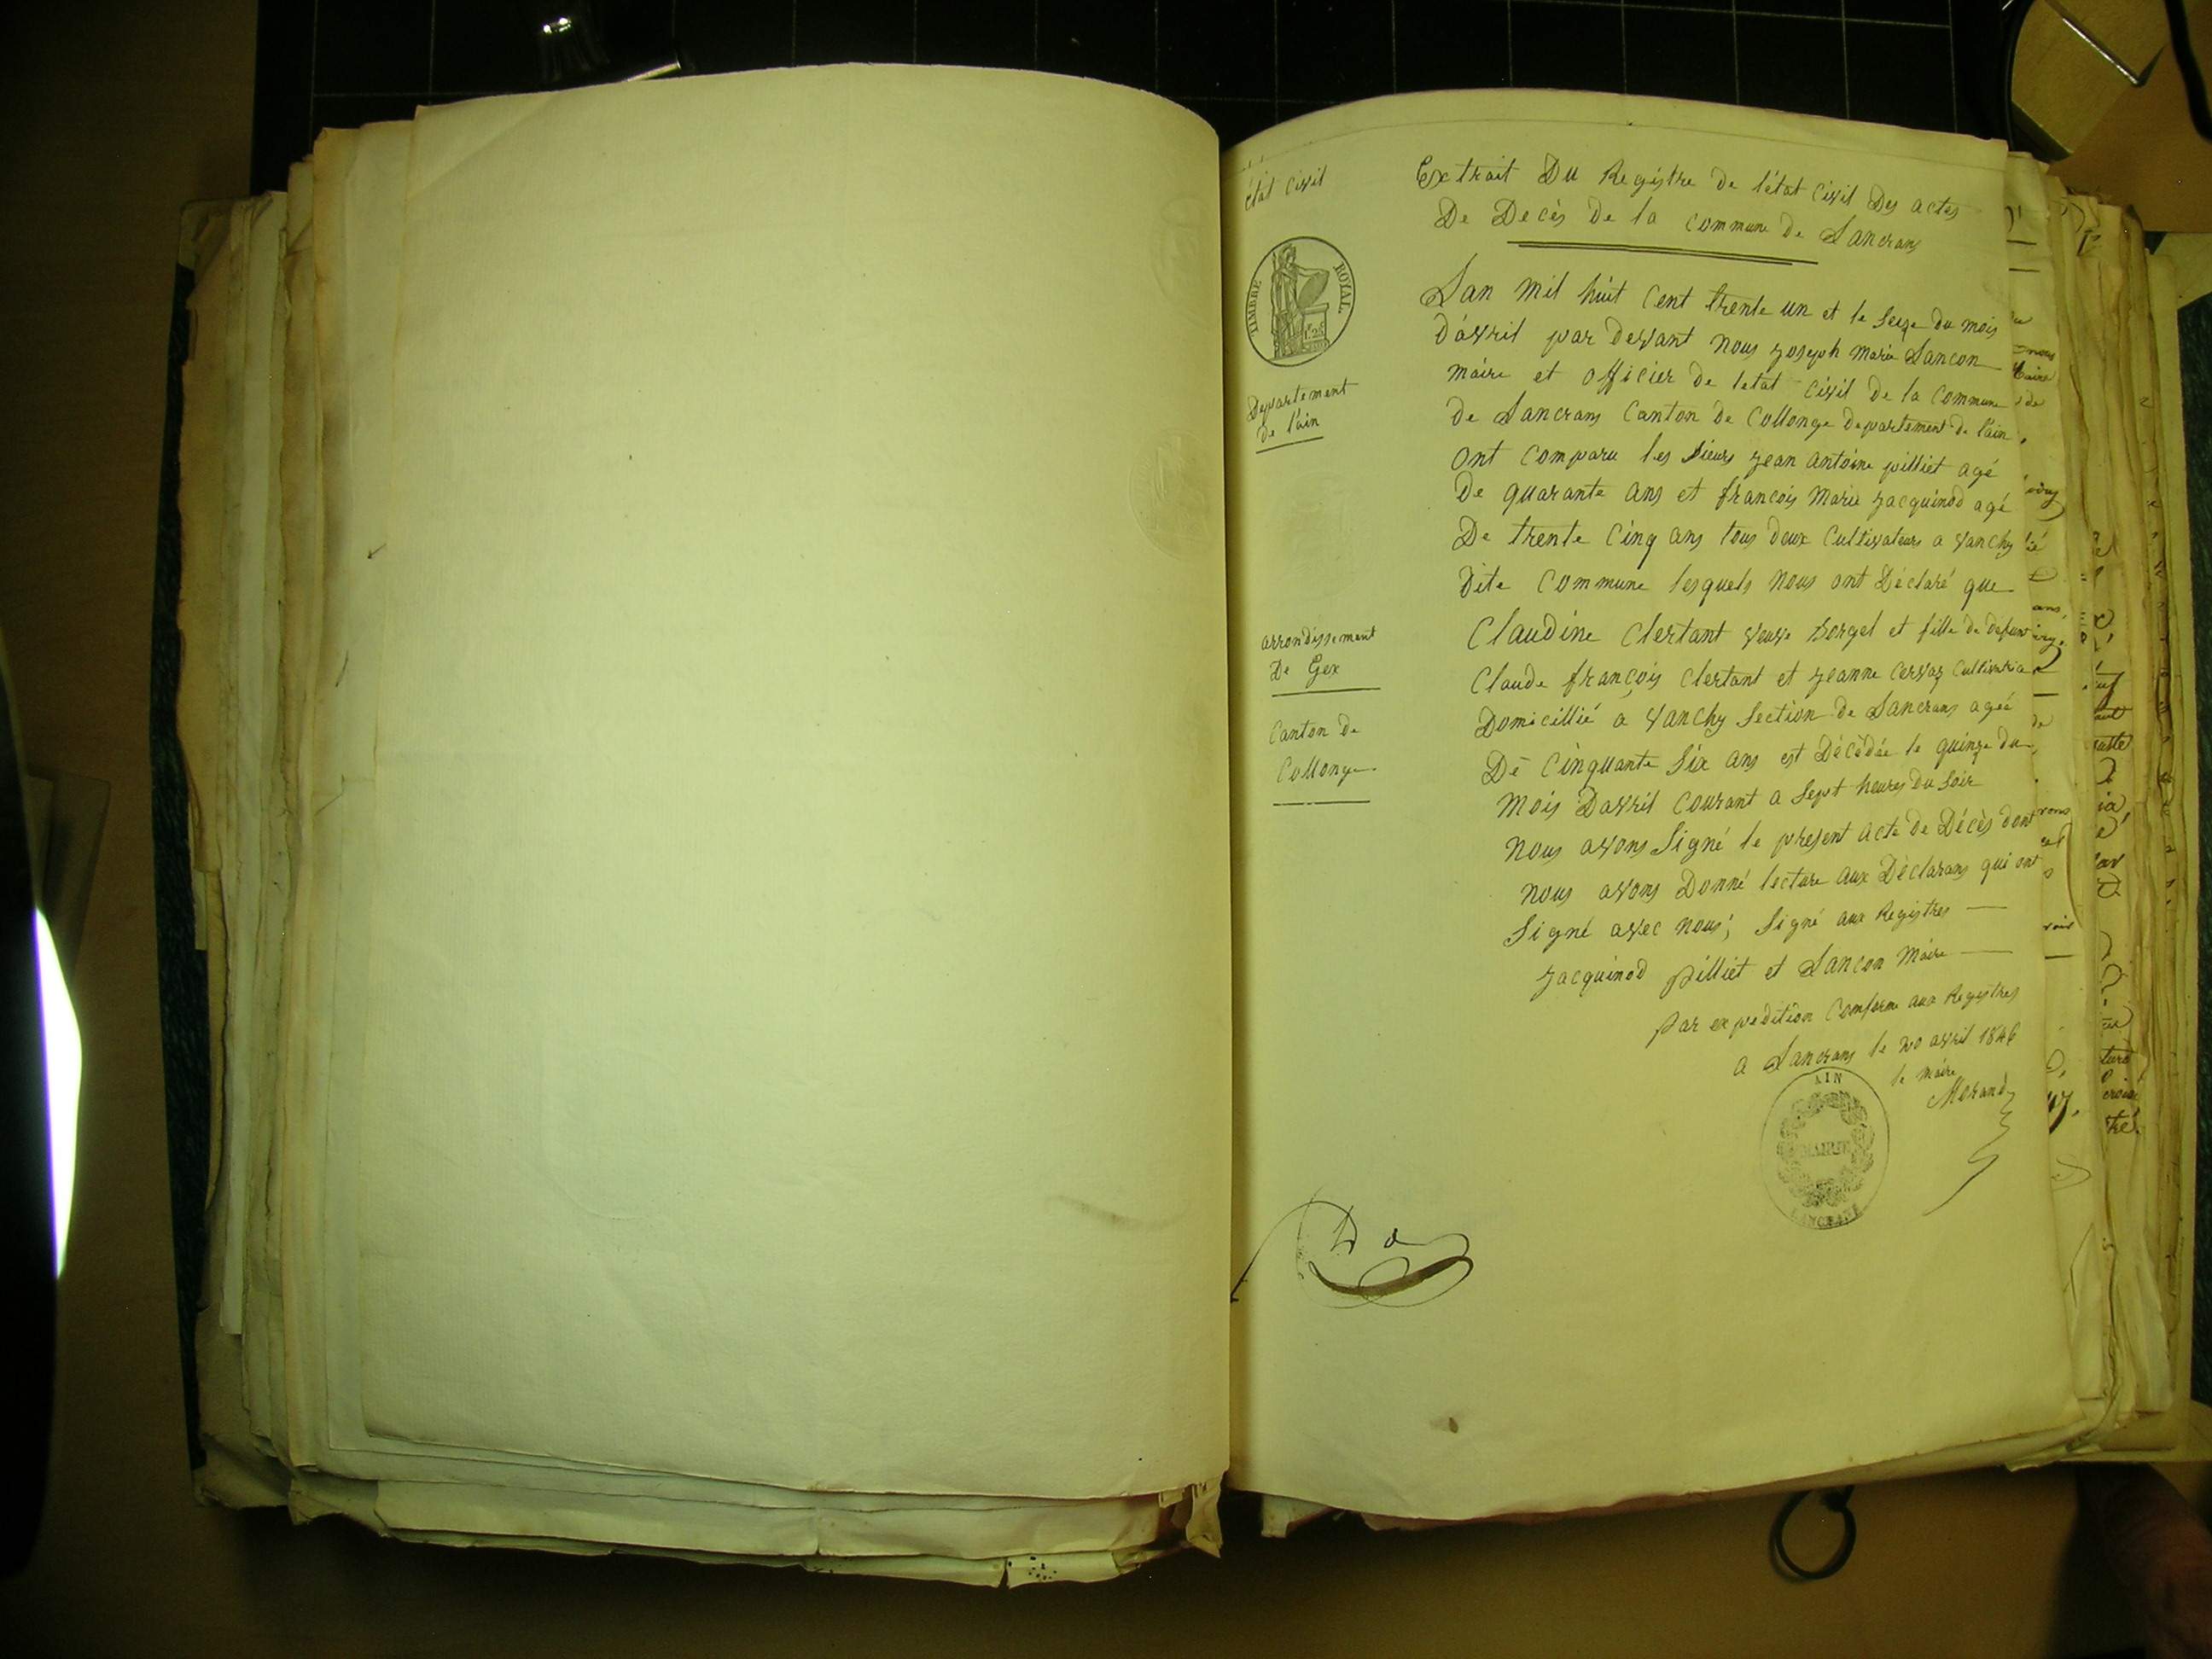 état Civil
TIMBRE ROYAL
1.25
Departement
de l'ain
arrondissement
De Gex
Canton de
Collonge
Extrait Du Registre de l'état Civil Des actes
De Decès de la Commune de Lancrans
Lan mil huit Cent trente un et le seize du mois
d'avril par devant nous joseph marie Lancon
maire et officier de letat Civil de la Commune
de Lancrans Canton de Collonge departement de l'ain
ont Comparu les sieurs jean antoine pilliet agé
De quarante ans et francois marie jacquinod agé
De trente Cinq ans tous deux Cultivateurs a vanchy
dite Commune lesquels nous ont Déclaré que
Claudine Clertant veuve et fille de défunt
Claude françois Clertant et jeanne Cervaz
Domicillié a vanchy section de Lancrans ageé
De Cinquante six ans est Décédée le quinze du
mois Davril Courant a sept heures du soir
nous avons signé le present acte de Décès dont
nous avons Donné lecture aux Déclarans qui ont
signé avec nous; signé aux Registres
jacquinod pilliet et Lancon maire
par expedition Comforme aux Registres
a Lancrans le 20 avril 1846
le maire
Morand
AIN
MAIRIE
LANCRANS